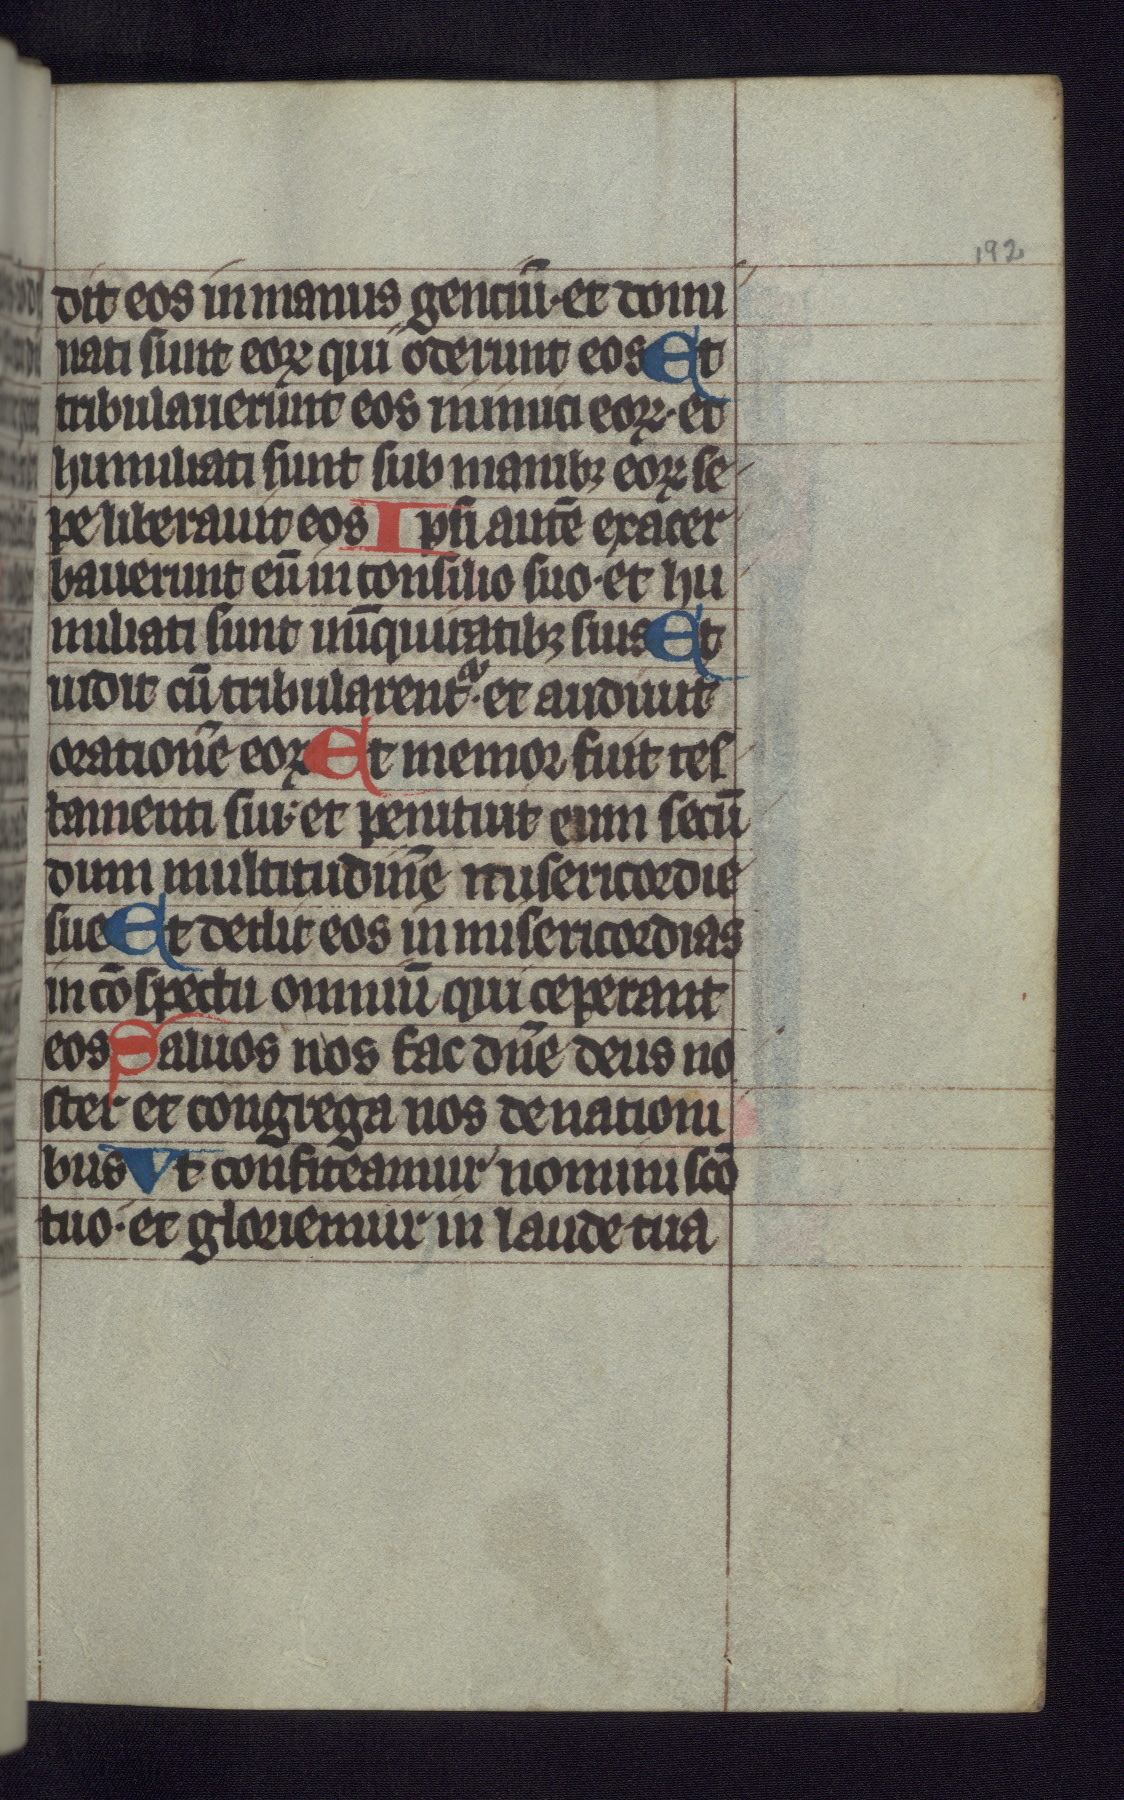 192
dit eos in manus genciū· et domi
nati sunt eoꝝ qui oderunt eos Et
tribulauerunt eos inimici eoꝝ· et
humiliati sunt sub manibꝫ eoꝝ se
pe liberauit eos Ipsi autē exacer
bauerunt eū in consilio suo· et hu
miliati sunt in īquitatibꝫ suis Et
uidit cū tribularentᷓ· et audiuit
orationē eoꝝ Et memor fuit tes
tamenti sui· et penituit eum secū
dum multitudinē misericordie
sue Et dedit eos in misericordias
in cōspectu omniū qui ceperant
eos Saluos nos fac dn̄e deus no
ster et congrega nos de nationi
bus Vt confiteamur nomini scō
tuo· et gloriemur in laude tua